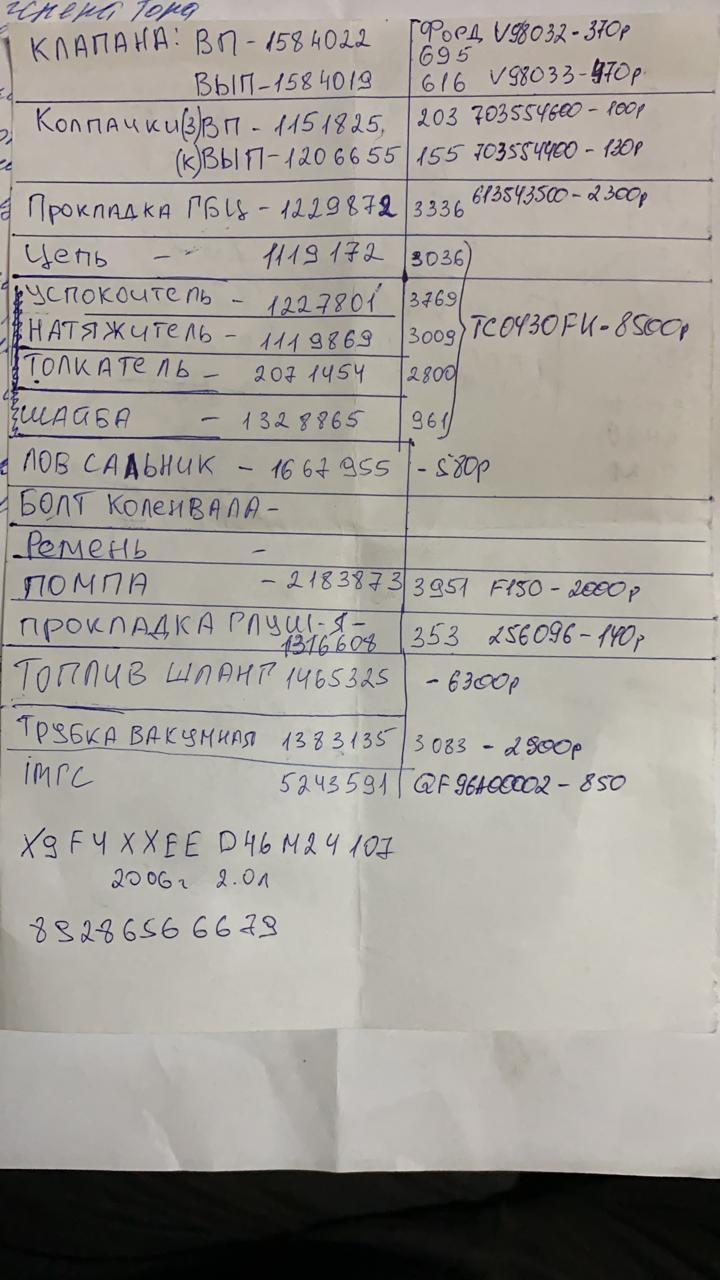 КЛАПАНА: ВП - 1584022 ФОРД V98032 - 370р
695
ВЫП - 1584019 616 V98033 - 470р.
Колпачки(З)ВП - 1151825, 203 703554600 - 100р
(К)ВЫП - 1206655 155 703554400 - 130р
Прокладка ГБЦ - 1229872 3336 613543500 - 2300р
Цепь - 1119172 3036
УСПОКОИТЕЛЬ - 1227801 3769
НАТЯЖИТЕЛЬ - 1119869 3009 TC0430FK - 8500р
ТОЛКАТЕЛЬ - 2071454 2800
ШАЙБА - 1328865 961
ЛОВ САЛЬНИК - 1667955 - 580р
БОЛТ КОЛЕНВАЛА -
Ремень -
ПОМПА - 2183873 3951 F150 - 2000р
ПРОКЛАДКА ГЛУШ-Я - 353 256096 - 140р
1316608
ТОПЛИВ ШЛАНГ 1465325 - 6300р
ТРУБКА ВАКУМНАЯ 1383135 3083 - 2900р
IMГС 5243591 QF96A00002 - 850
X9F4XXEED46M24107
2006г 2.0л
89286566679